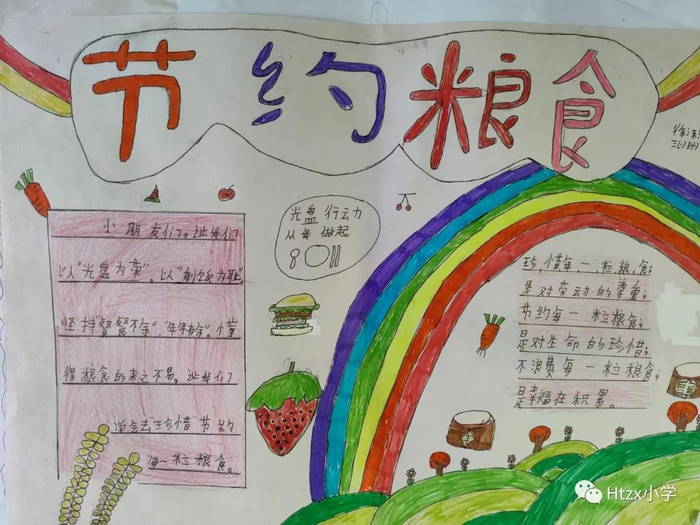 节约粮食
三(3)班
光盘行动
从我做起
小朋友们,让我们
以"光盘为荣",以"剩饭为耻",
"坚持餐餐不余","年年有余"。懂
得粮食的来之不易。让我们
学会去"珍惜"节约
每一粒粮食。
珍惜每一粒粮食;
是对劳动的尊重。
节约每一粒粮食;
是对生命的珍惜;
不浪费每一粒粮食;
是幸福在积累。
Htzx小学